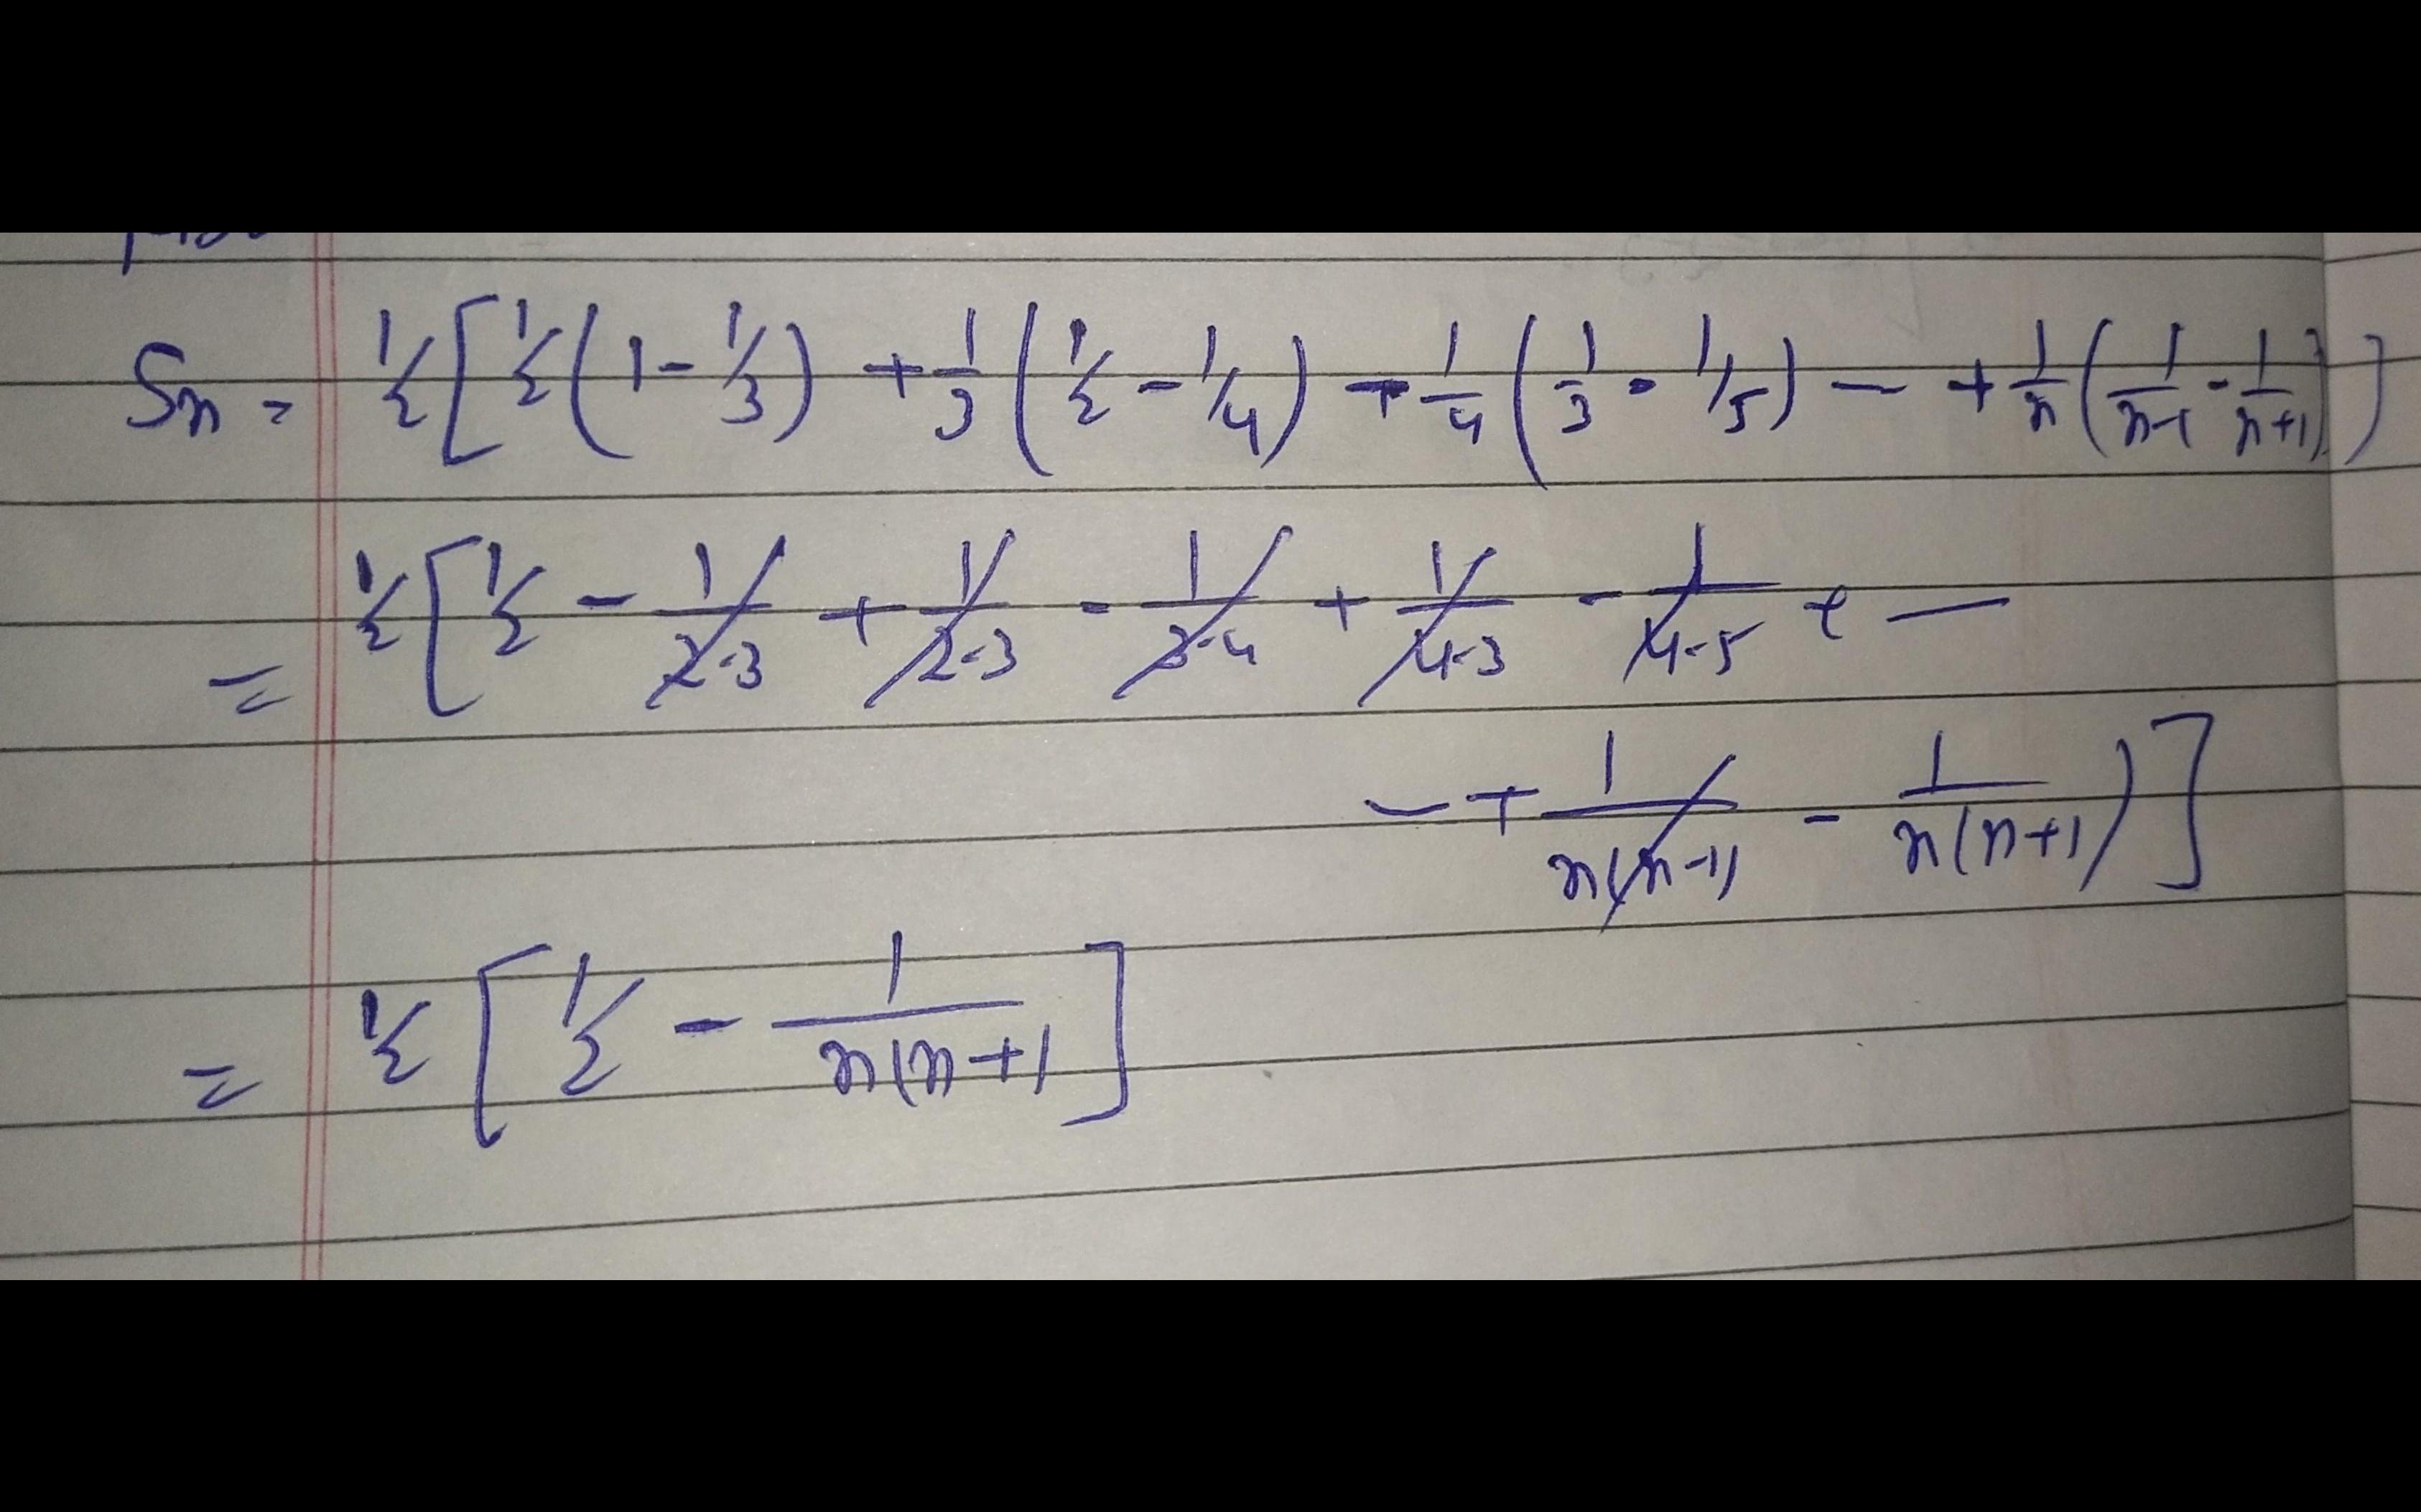 Sn = 1/2 [ 1/2 ( 1 - 1/3 ) + 1/3 ( 1/2 - 1/4 ) + 1/4 ( 1/3 - 1/5 ) — + 1/n ( 1/n-1 - 1/n+1 ) ]
= 1/2 [ 1/2 - 1/2·3 + 1/2·3 - 1/3·4 + 1/4·3 - 1/4·5 + —
— + 1/n(n-1) - 1/n(n+1) ) ]
= 1/2 [ 1/2 - 1/n(n+1 ]